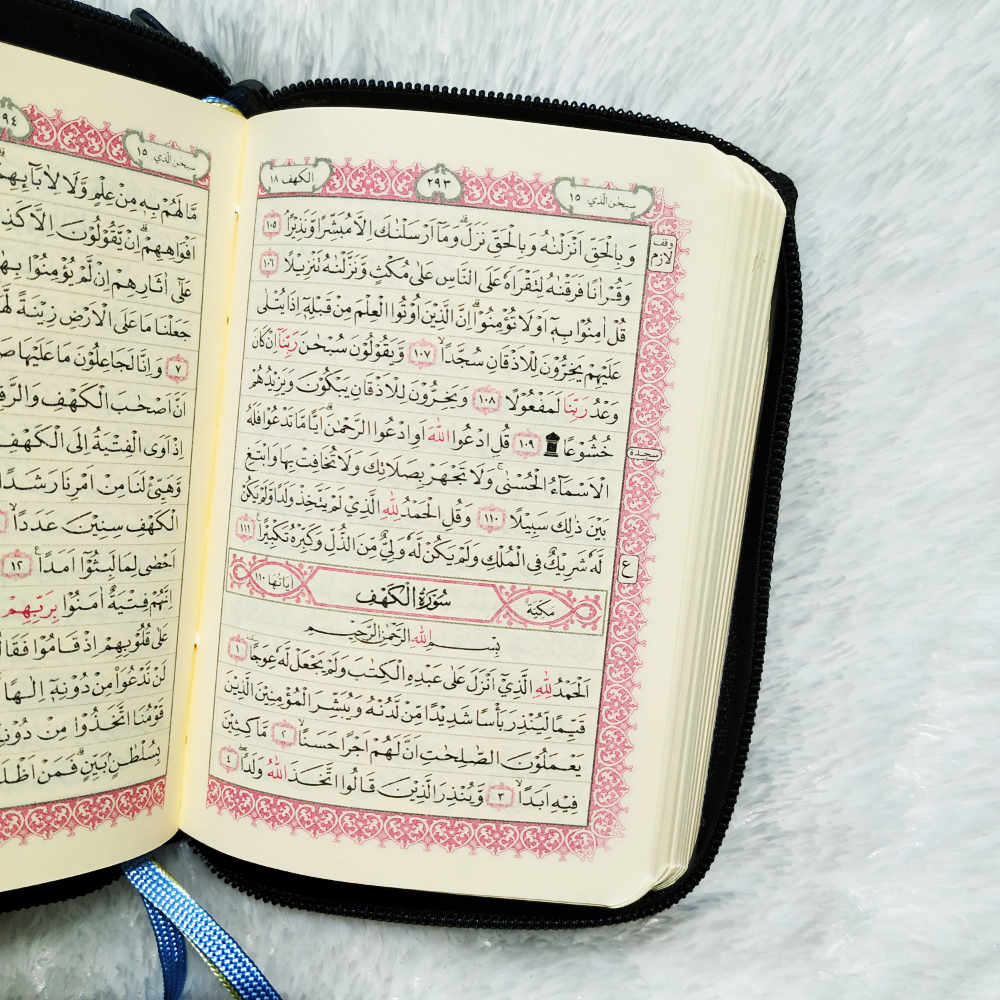 الكهف ١٨
٢٩٣
سبحن الذي ١٥
وَبِالْحَقِّ اَنْزَلْنٰهُ وَبِالْحَقِّ نَزَلَۗ وَمَآ اَرْسَلْنٰكَ اِلَّا مُبَشِّرًا وَّنَذِيْرًاۘ ١٠٥
وقف لازم
وَقُرْاٰنًا فَرَقْنٰهُ لِتَقْرَاَهٗ عَلَى النَّاسِ عَلٰى مُكْثٍ وَّنَزَّلْنٰهُ تَنْزِيْلًا ١٠٦
قُلْ اٰمِنُوْا بِهٖٓ اَوْ لَا تُؤْمِنُوْاۗ اِنَّ الَّذِيْنَ اُوْتُوا الْعِلْمَ مِنْ قَبْلِهٖٓ اِذَا يُتْلٰى
عَلَيْهِمْ يَخِرُّوْنَ لِلْاَذْقَانِ سُجَّدًاۙ ١٠٧ وَّيَقُوْلُوْنَ سُبْحٰنَ رَبِّنَآ اِنْ كَانَ
وَعْدُ رَبِّنَا لَمَفْعُوْلًا ١٠٨ وَيَخِرُّوْنَ لِلْاَذْقَانِ يَبْكُوْنَ وَيَزِيْدُهُمْ
خُشُوْعًا ۩ ١٠٩ قُلِ ادْعُوا اللّٰهَ اَوِ ادْعُوا الرَّحْمٰنَۗ اَيًّا مَّا تَدْعُوْا فَلَهُ
سجدة
الْاَسْمَاۤءُ الْحُسْنٰىۚ وَلَا تَجْهَرْ بِصَلَاتِكَ وَلَا تُخَافِتْ بِهَا وَابْتَغِ
بَيْنَ ذٰلِكَ سَبِيْلًا ١١٠ وَقُلِ الْحَمْدُ لِلّٰهِ الَّذِيْ لَمْ يَتَّخِذْ وَلَدًا وَّلَمْ يَكُنْ
لَّهٗ شَرِيْكٌ فِى الْمُلْكِ وَلَمْ يَكُنْ لَّهٗ وَلِيٌّ مِّنَ الذُّلِّ وَكَبِّرْهُ تَكْبِيْرًا ١١١
ع
مكية
سُوْرَةُ الْكَهْفِ
اٰيَاتُهَا ١١٠
بِسْمِ اللّٰهِ الرَّحْمٰنِ الرَّحِيْمِ
اَلْحَمْدُ لِلّٰهِ الَّذِيْٓ اَنْزَلَ عَلٰى عَبْدِهِ الْكِتٰبَ وَلَمْ يَجْعَلْ لَّهٗ عِوَجًاۜ ١
قَيِّمًا لِّيُنْذِرَ بَأْسًا شَدِيْدًا مِّنْ لَّدُنْهُ وَيُبَشِّرَ الْمُؤْمِنِيْنَ الَّذِيْنَ
يَعْمَلُوْنَ الصّٰلِحٰتِ اَنَّ لَهُمْ اَجْرًا حَسَنًاۙ ٢ مَّاكِثِيْنَ
فِيْهِ اَبَدًاۙ ٣ وَّيُنْذِرَ الَّذِيْنَ قَالُوا اتَّخَذَ اللّٰهُ وَلَدًاۖ ٤
سبحن الذي ١٥
مَا لَهُمْ بِهٖ مِنْ عِلْمٍ وَّلَا لِاٰبَاۤىِٕهِمْ
اَفْوَاهِهِمْۗ اِنْ يَّقُوْلُوْنَ اِلَّا
عَلٰٓى اٰثَارِهِمْ اِنْ لَّمْ يُؤْمِنُوْا
جَعَلْنَا مَا عَلَى الْاَرْضِ زِيْنَةً
٧ وَاِنَّا لَجَاعِلُوْنَ مَا عَلَيْهَا
اَنَّ اَصْحٰبَ الْكَهْفِ
اِذْ اَوَى الْفِتْيَةُ اِلَى الْكَهْفِ
وَهَيِّئْ لَنَا مِنْ اَمْرِنَا رَشَدًا
الْكَهْفِ سِنِيْنَ عَدَدًاۙ
اَحْصٰى لِمَا لَبِثُوْٓا اَمَدًا ١٢
اِنَّهُمْ فِتْيَةٌ اٰمَنُوْا بِرَبِّهِمْ
عَلٰى قُلُوْبِهِمْ اِذْ قَامُوْا
لَنْ نَّدْعُوَا۟ مِنْ دُوْنِهٖٓ اِلٰهًا
قَوْمُنَا اتَّخَذُوْا مِنْ
بِسُلْطٰنٍۢ بَيِّنٍۗ فَمَنْ